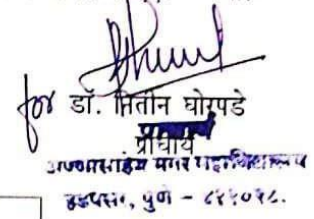 for डॉ. नितीन घोरपडे
प्राचार्य
अण्णासाहेब मगर महाविद्यालय
हडपसर, पुणे - ४११०२८.